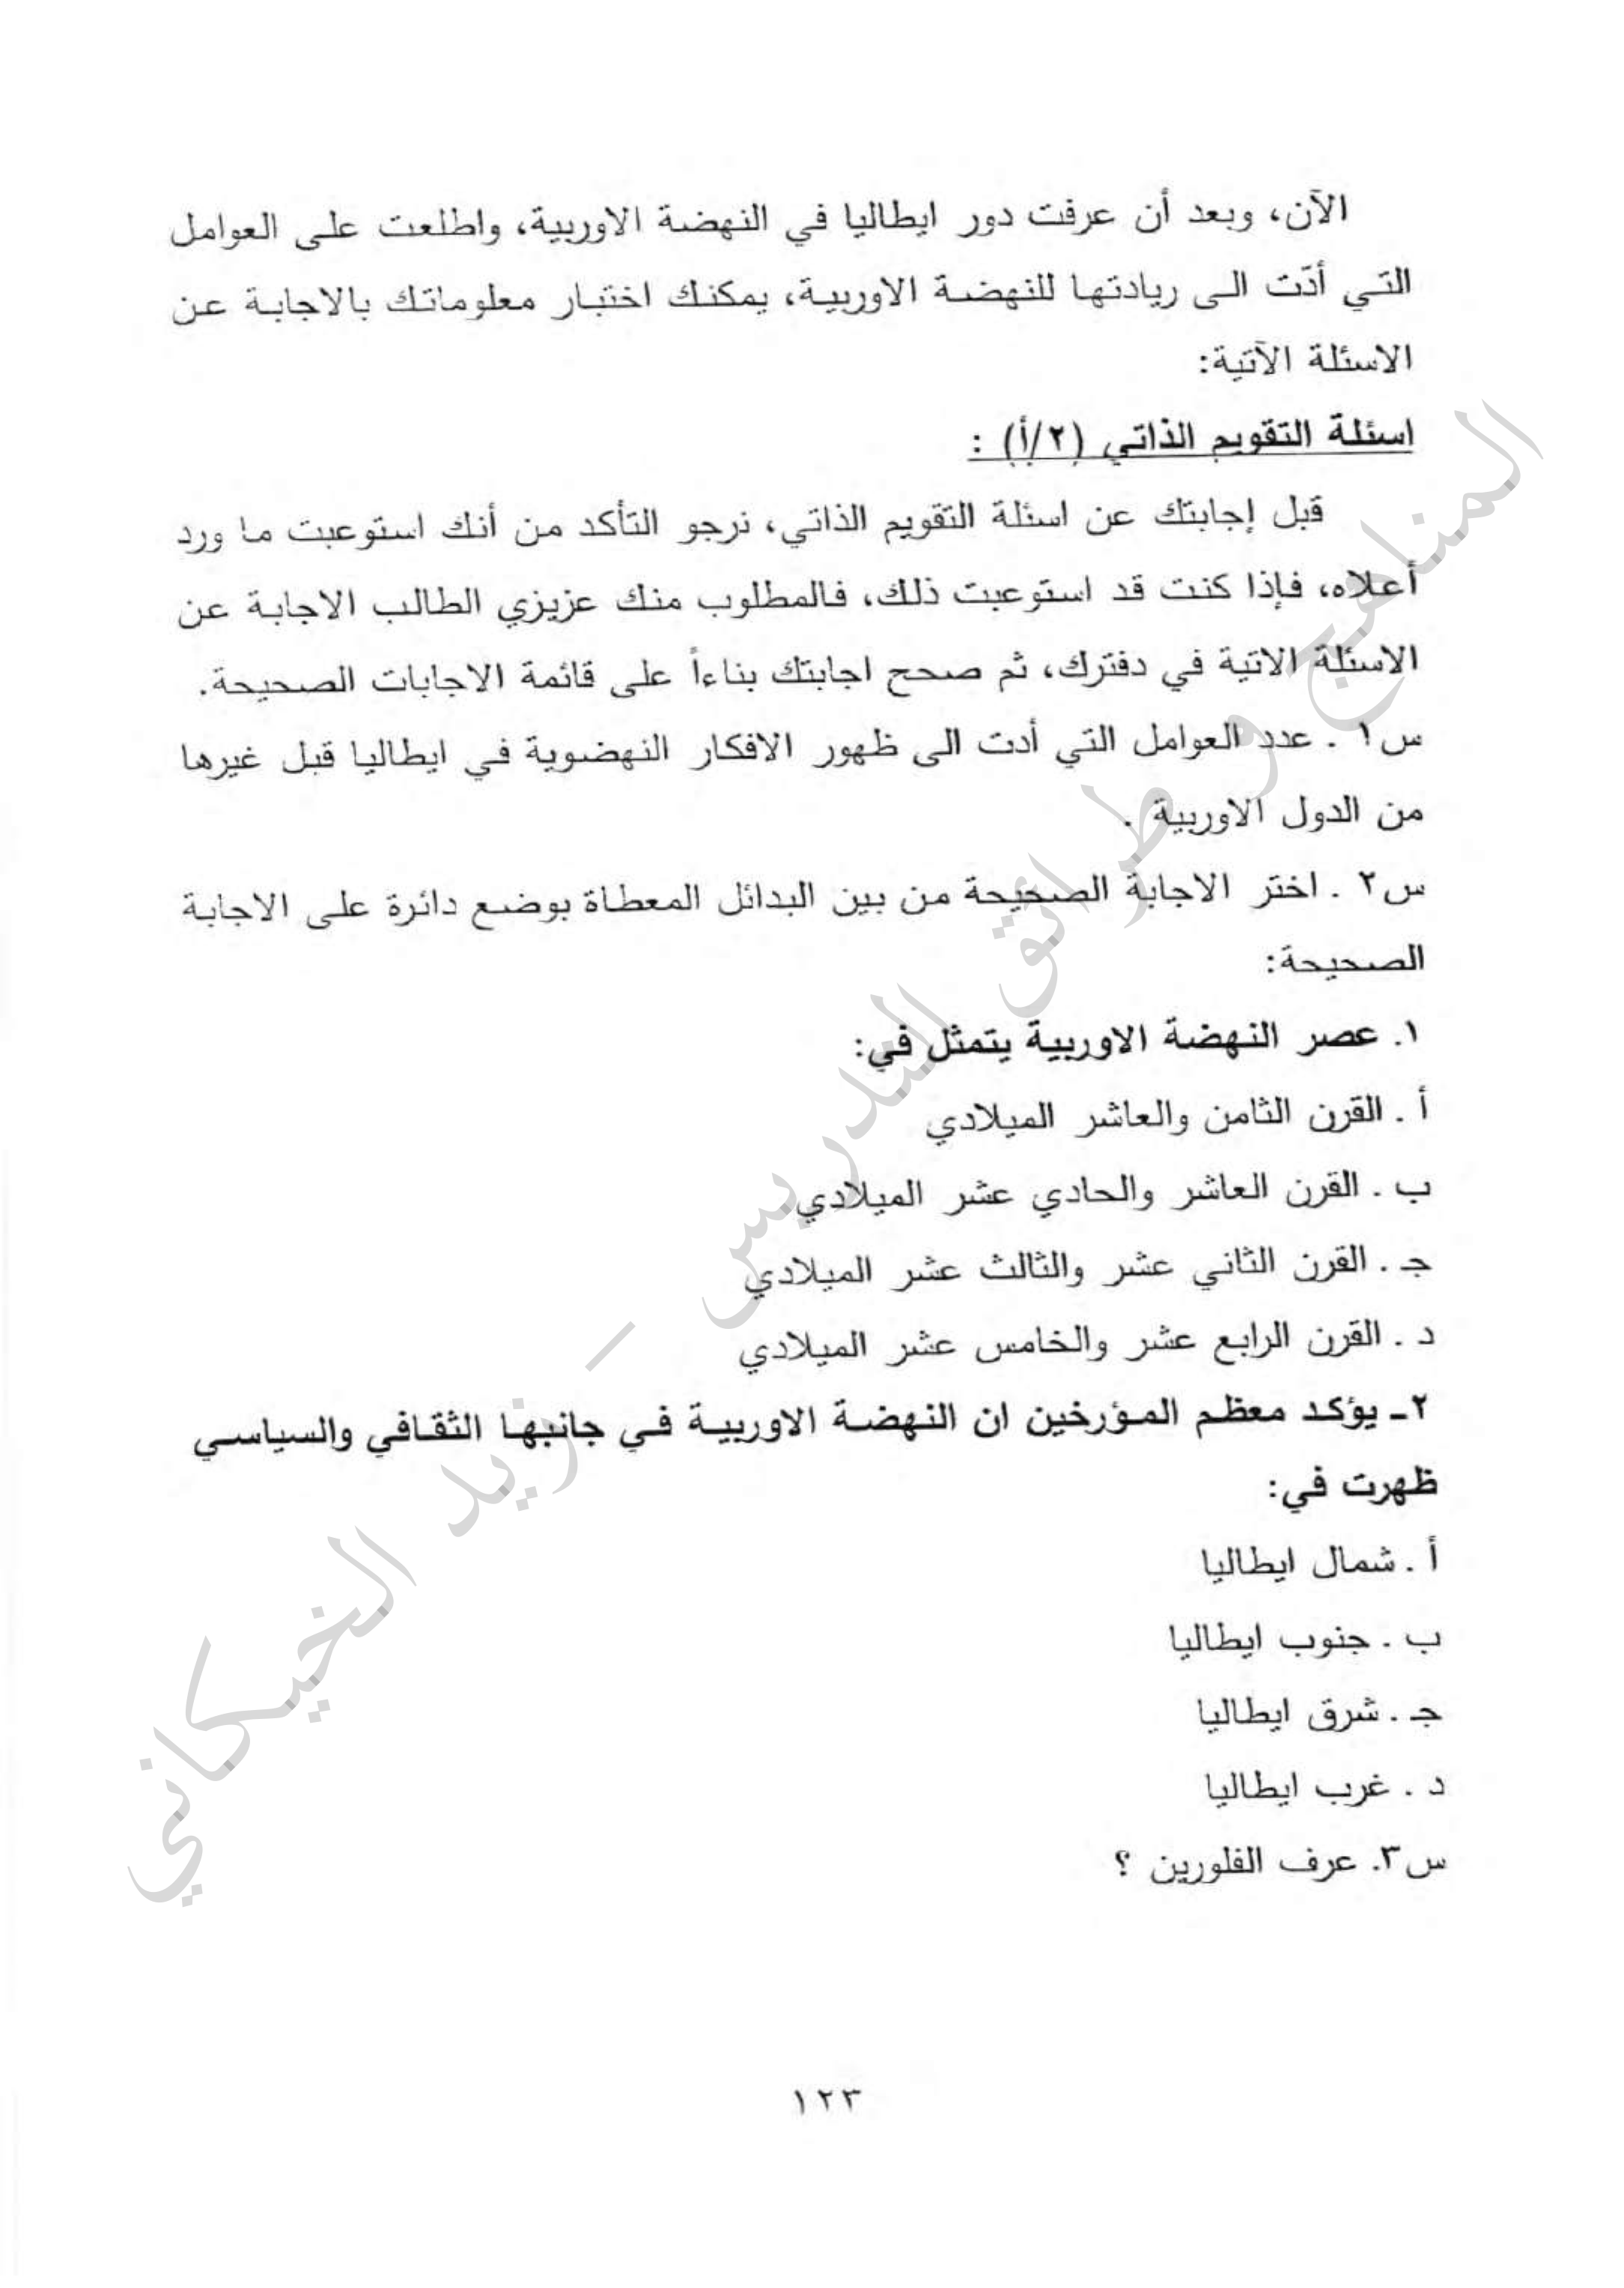 الآن، وبعد أن عرفت دور ايطاليا في النهضة الاوربية، واطلعت على العوامل
التي أدّت الى ريادتها للنهضة الاوربية، يمكنك اختبار معلوماتك بالاجابة عن
الاسئلة الآتية:
اسئلة التقويم الذاتي (٢/أ) :
قبل إجابتك عن اسئلة التقويم الذاتي، نرجو التأكد من أنك استوعبت ما ورد
أعلاه، فإذا كنت قد استوعبت ذلك، فالمطلوب منك عزيزي الطالب الاجابة عن
الاسئلة الاتية في دفترك، ثم صحح اجابتك بناءاً على قائمة الاجابات الصحيحة.
س١ . عدد العوامل التي أدت الى ظهور الافكار النهضوية في ايطاليا قبل غيرها
من الدول الاوربية .
س٢ . اختر الاجابة الصحيحة من بين البدائل المعطاة بوضع دائرة على الاجابة
الصحيحة:
١. عصر النهضة الاوربية يتمثل في:
أ . القرن الثامن والعاشر الميلادي
ب . القرن العاشر والحادي عشر الميلادي
جـ . القرن الثاني عشر والثالث عشر الميلادي
د . القرن الرابع عشر والخامس عشر الميلادي
٢ـ يؤكد معظم المؤرخين ان النهضة الاوربية في جانبها الثقافي والسياسي
ظهرت في:
أ . شمال ايطاليا
ب . جنوب ايطاليا
جـ . شرق ايطاليا
د . غرب ايطاليا
س٣. عرف الفلورين ؟
١٢٣
المناهج و طرائق التدريس – زيد الخيكاني